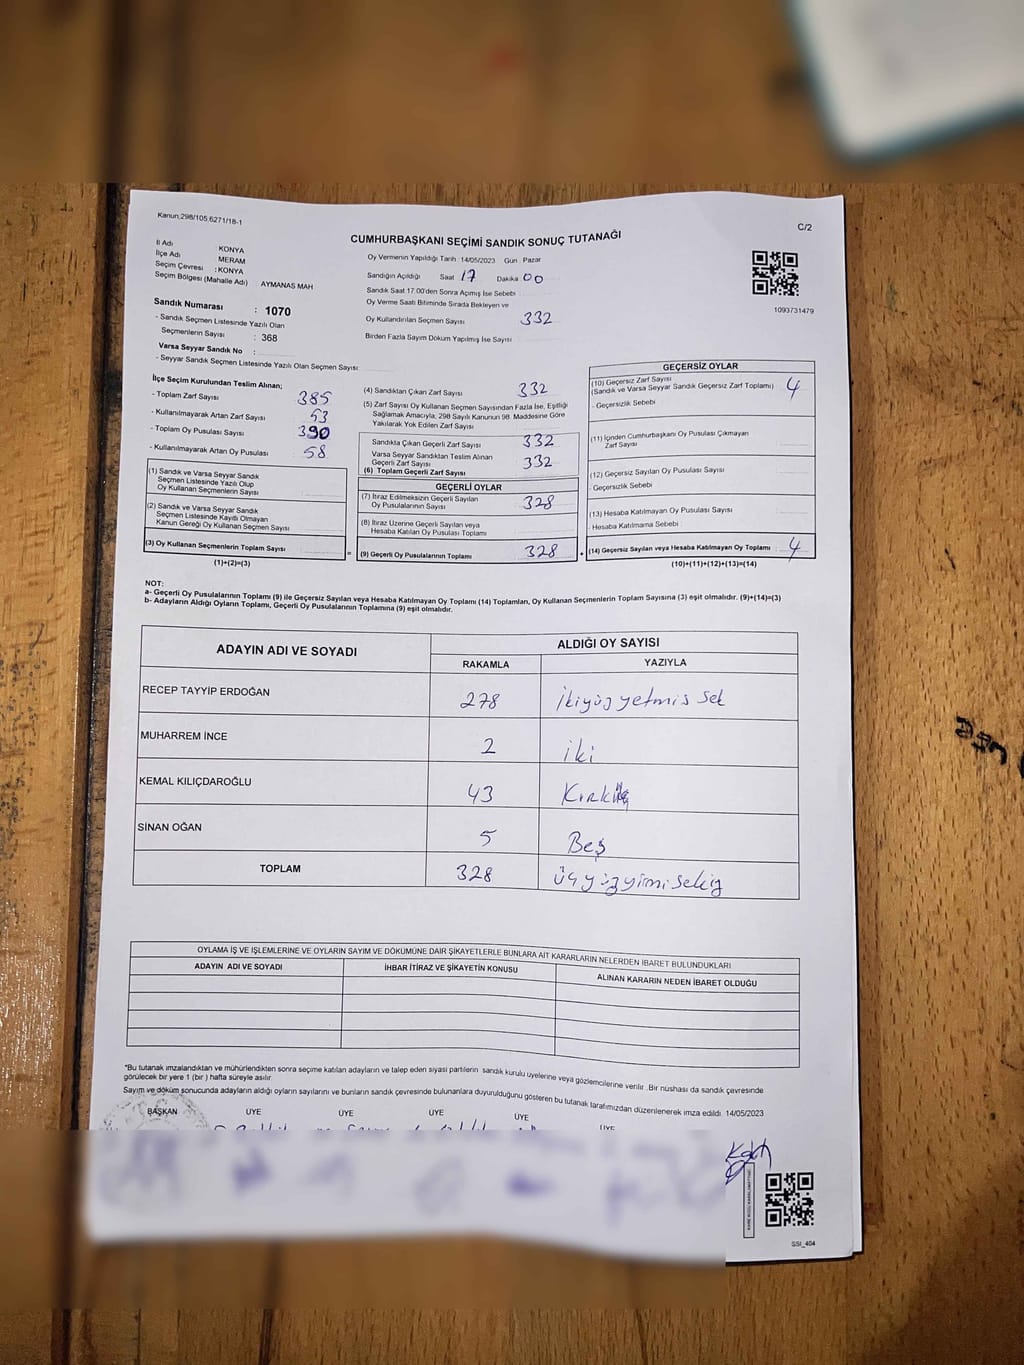 Kanun,298/105,6271/18-1
C/2
CUMHURBAŞKANI SEÇİMİ SANDIK SONUÇ TUTANAĞI
İl Adı KONYA
İlçe Adı MERAM
Seçim Çevresi : KONYA
Seçim Bölgesi (Mahalle Adı) AYMANAS MAH
Oy Vermenin Yapıldığı Tarih : 14/05/2023 Gün Pazar
Sandığın Açıldığı Saat 17 Dakika 00
Sandık Saat 17:00'den Sonra Açılmış İse Sebebi
Oy Verme Saati Bitiminde Sırada Bekleyen ve
Oy Kullandırılan Seçmen Sayısı 332
Birden Fazla Sayım Döküm Yapılmış İse Sayısı
1093731479
Sandık Numarası : 1070
- Sandık Seçmen Listesinde Yazılı Olan
Seçmenlerin Sayısı : 368
Varsa Seyyar Sandık No :
- Seyyar Sandık Seçmen Listesinde Yazılı Olan Seçmen Sayısı
İlçe Seçim Kurulundan Teslim Alınan;
- Toplam Zarf Sayısı 385
- Kullanılmayarak Artan Zarf Sayısı 53
- Toplam Oy Pusulası Sayısı 390
- Kullanılmayarak Artan Oy Pusulası 58
(1) Sandık ve Varsa Seyyar Sandık
Seçmen Listesinde Yazılı Olup
Oy Kullanan Seçmenlerin Sayısı
(2) Sandık ve Varsa Seyyar Sandık
Seçmen Listesinde Kayıtlı Olmayan
Kanun Gereği Oy Kullanan Seçmen Sayısı
(3) Oy Kullanan Seçmenlerin Toplam Sayısı
(1)+(2)=(3)
(4) Sandıktan Çıkan Zarf Sayısı 332
(5) Zarf Sayısı Oy Kullanan Seçmen Sayısından Fazla İse, Eşitliği
Sağlamak Amacıyla, 298 Sayılı Kanunun 98. Maddesine Göre
Yakılarak Yok Edilen Zarf Sayısı
Sandıkta Çıkan Geçerli Zarf Sayısı 332
Varsa Seyyar Sandıktan Teslim Alınan
Geçerli Zarf Sayısı 332
(6) Toplam Geçerli Zarf Sayısı
GEÇERLİ OYLAR
(7) İtiraz Edilmeksizin Geçerli Sayılan
Oy Pusulalarının Sayısı 328
(8) İtiraz Üzerine Geçerli Sayılan veya
Hesaba Katılan Oy Pusulası Toplamı
= (9) Geçerli Oy Pusulalarının Toplamı 328 +
GEÇERSİZ OYLAR
(10) Geçersiz Zarf Sayısı
(Sandık ve Varsa Seyyar Sandık Geçersiz Zarf Toplamı) 4
- Geçersizlik Sebebi
(11) İçinden Cumhurbaşkanı Oy Pusulası Çıkmayan
Zarf Sayısı
(12) Geçersiz Sayılan Oy Pusulası Sayısı
- Geçersizlik Sebebi
(13) Hesaba Katılmayan Oy Pusulası Sayısı
- Hesaba Katılmama Sebebi
(14) Geçersiz Sayılan veya Hesaba Katılmayan Oy Toplamı 4
(10)+(11)+(12)+(13)=(14)
NOT:
a- Geçerli Oy Pusulalarının Toplamı (9) ile Geçersiz Sayılan veya Hesaba Katılmayan Oy Toplamı (14) Toplamları, Oy Kullanan Seçmenlerin Toplam Sayısına (3) eşit olmalıdır. (9)+(14)=(3)
b- Adayların Aldığı Oyların Toplamı, Geçerli Oy Pusulalarının Toplamına (9) eşit olmalıdır.
ADAYIN ADI VE SOYADI ALDIĞI OY SAYISI
RAKAMLA YAZIYLA
RECEP TAYYİP ERDOĞAN 278 İkiyüz yetmis sek
MUHARREM İNCE 2 iki
KEMAL KILIÇDAROĞLU 43 Kırküç
SİNAN OĞAN 5 Beş
TOPLAM 328 üçyüzyirmisekiz
OYLAMA İŞ VE İŞLEMLERİNE VE OYLARIN SAYIM VE DÖKÜMÜNE DAİR ŞİKAYETLERLE BUNLARA AİT KARARLARIN NELERDEN İBARET BULUNDUKLARI
ADAYIN ADI VE SOYADI İHBAR İTİRAZ VE ŞİKAYETİN KONUSU ALINAN KARARIN NEDEN İBARET OLDUĞU
*Bu tutanak imzalandıktan ve mühürlendikten sonra seçime katılan adayların ve talep eden siyasi partilerin sandık kurulu üyelerine veya gözlemcilerine verilir. Bir nüshası da sandık çevresinde
görülecek bir yere 1 (bir) hafta süreyle asılır.
Sayım ve döküm sonucunda adayların aldığı oyların sayılarını ve bunların sandık çevresinde bulunanlara duyurulduğunu gösteren bu tutanak tarafımızdan düzenlenerek imza edildi. 14/05/2023
BAŞKAN ÜYE ÜYE ÜYE ÜYE ÜYE
SSI_404